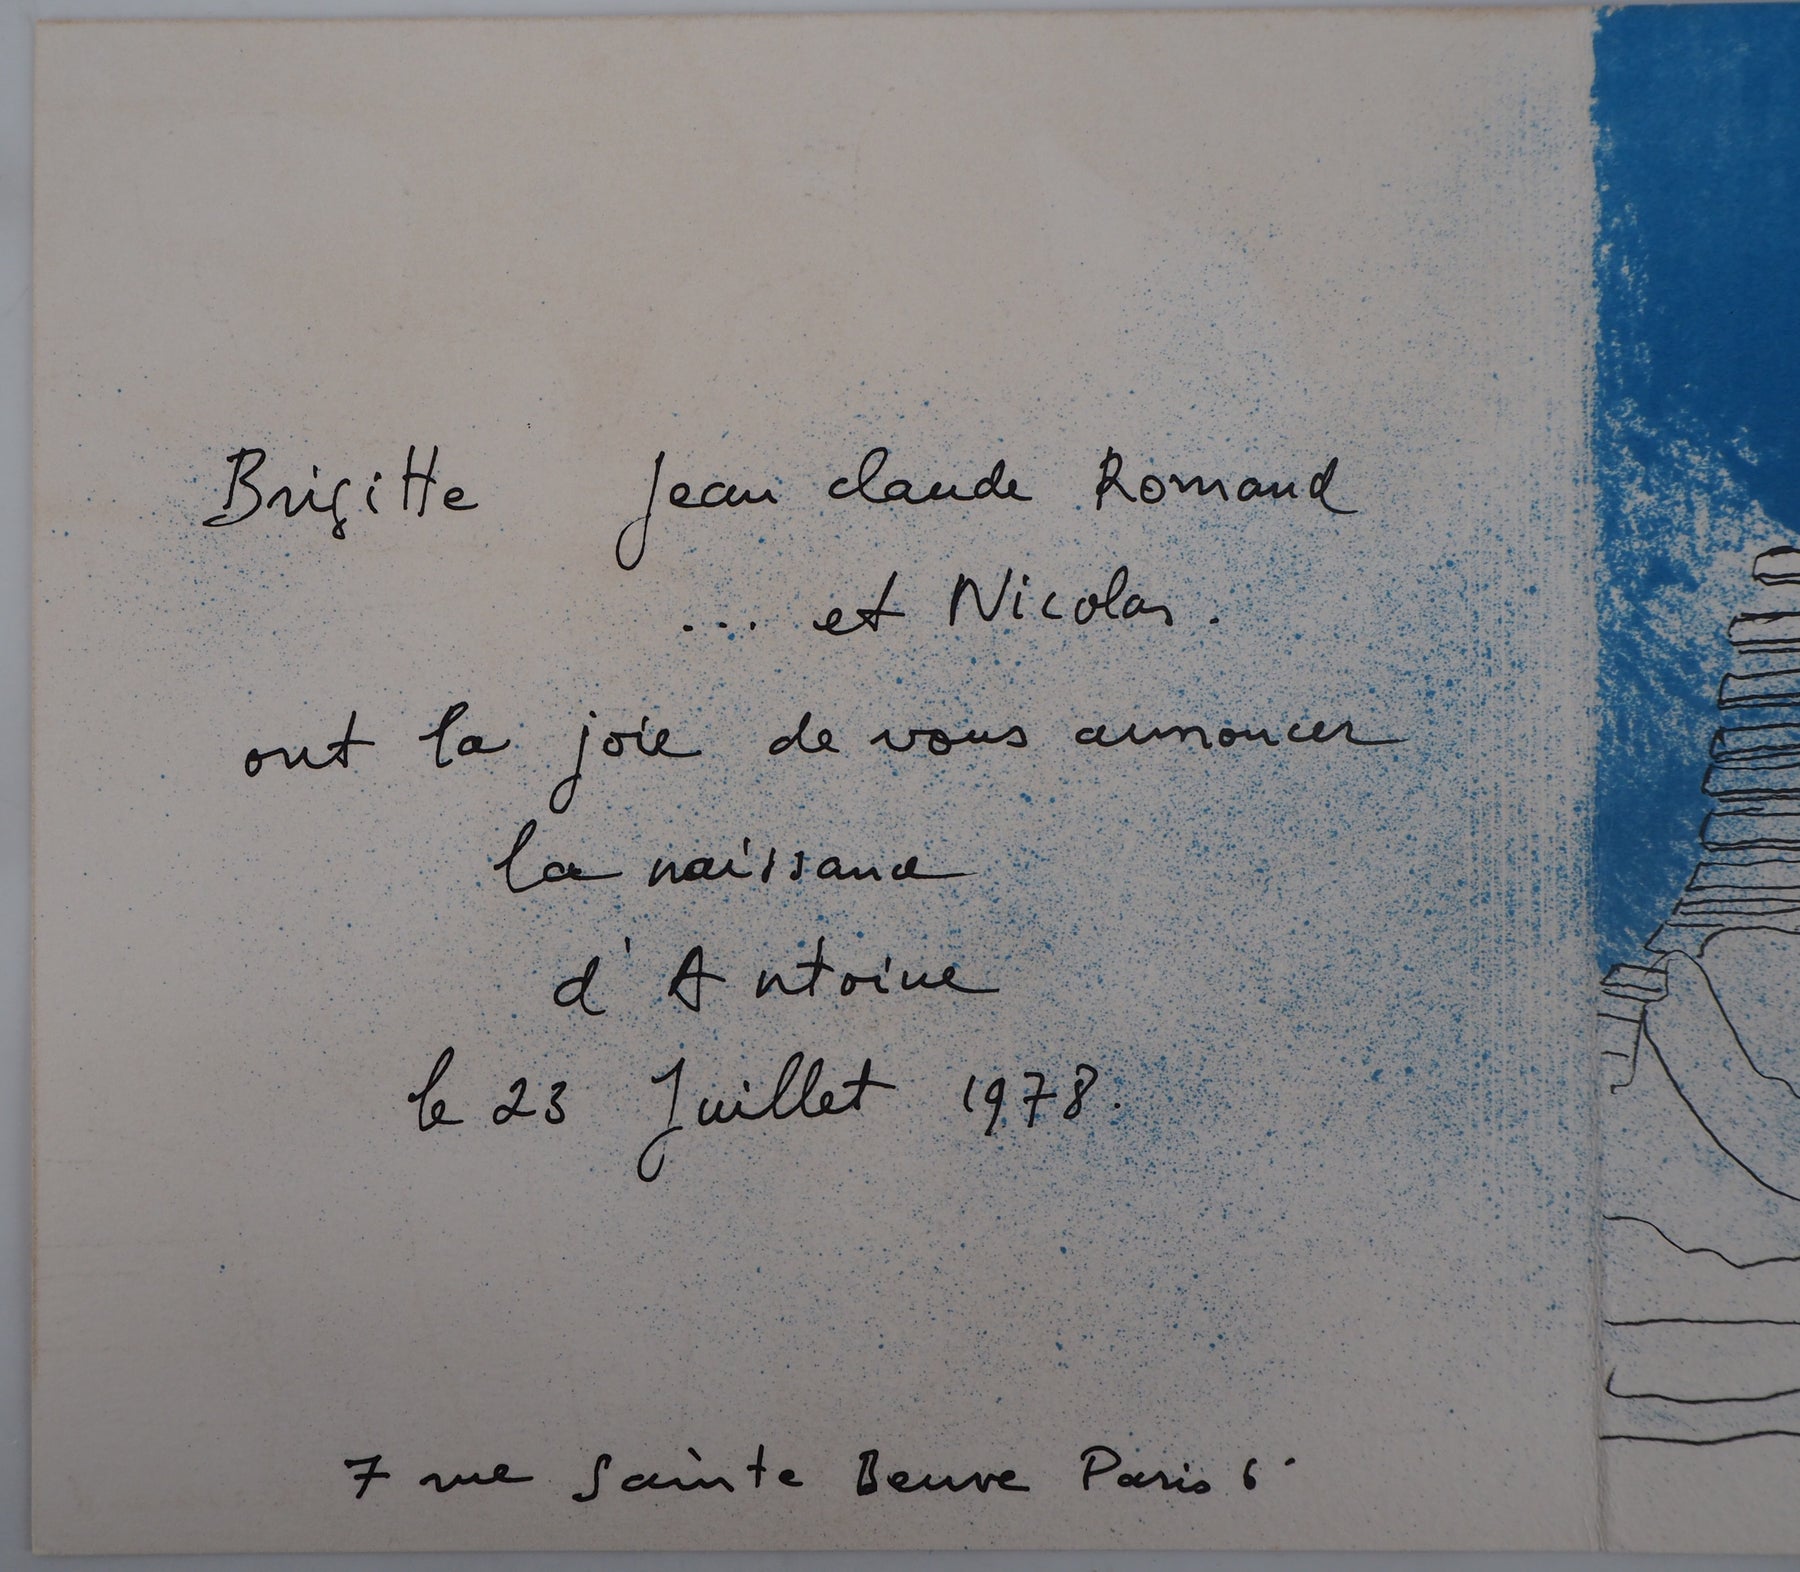 Brigitte Jean claude Romand
... et Nicolas.
ont la joie de vous annoncer
la naissance
d'Antoine
le 23 Juillet 1978.
7 rue Sainte Beuve Paris 6e